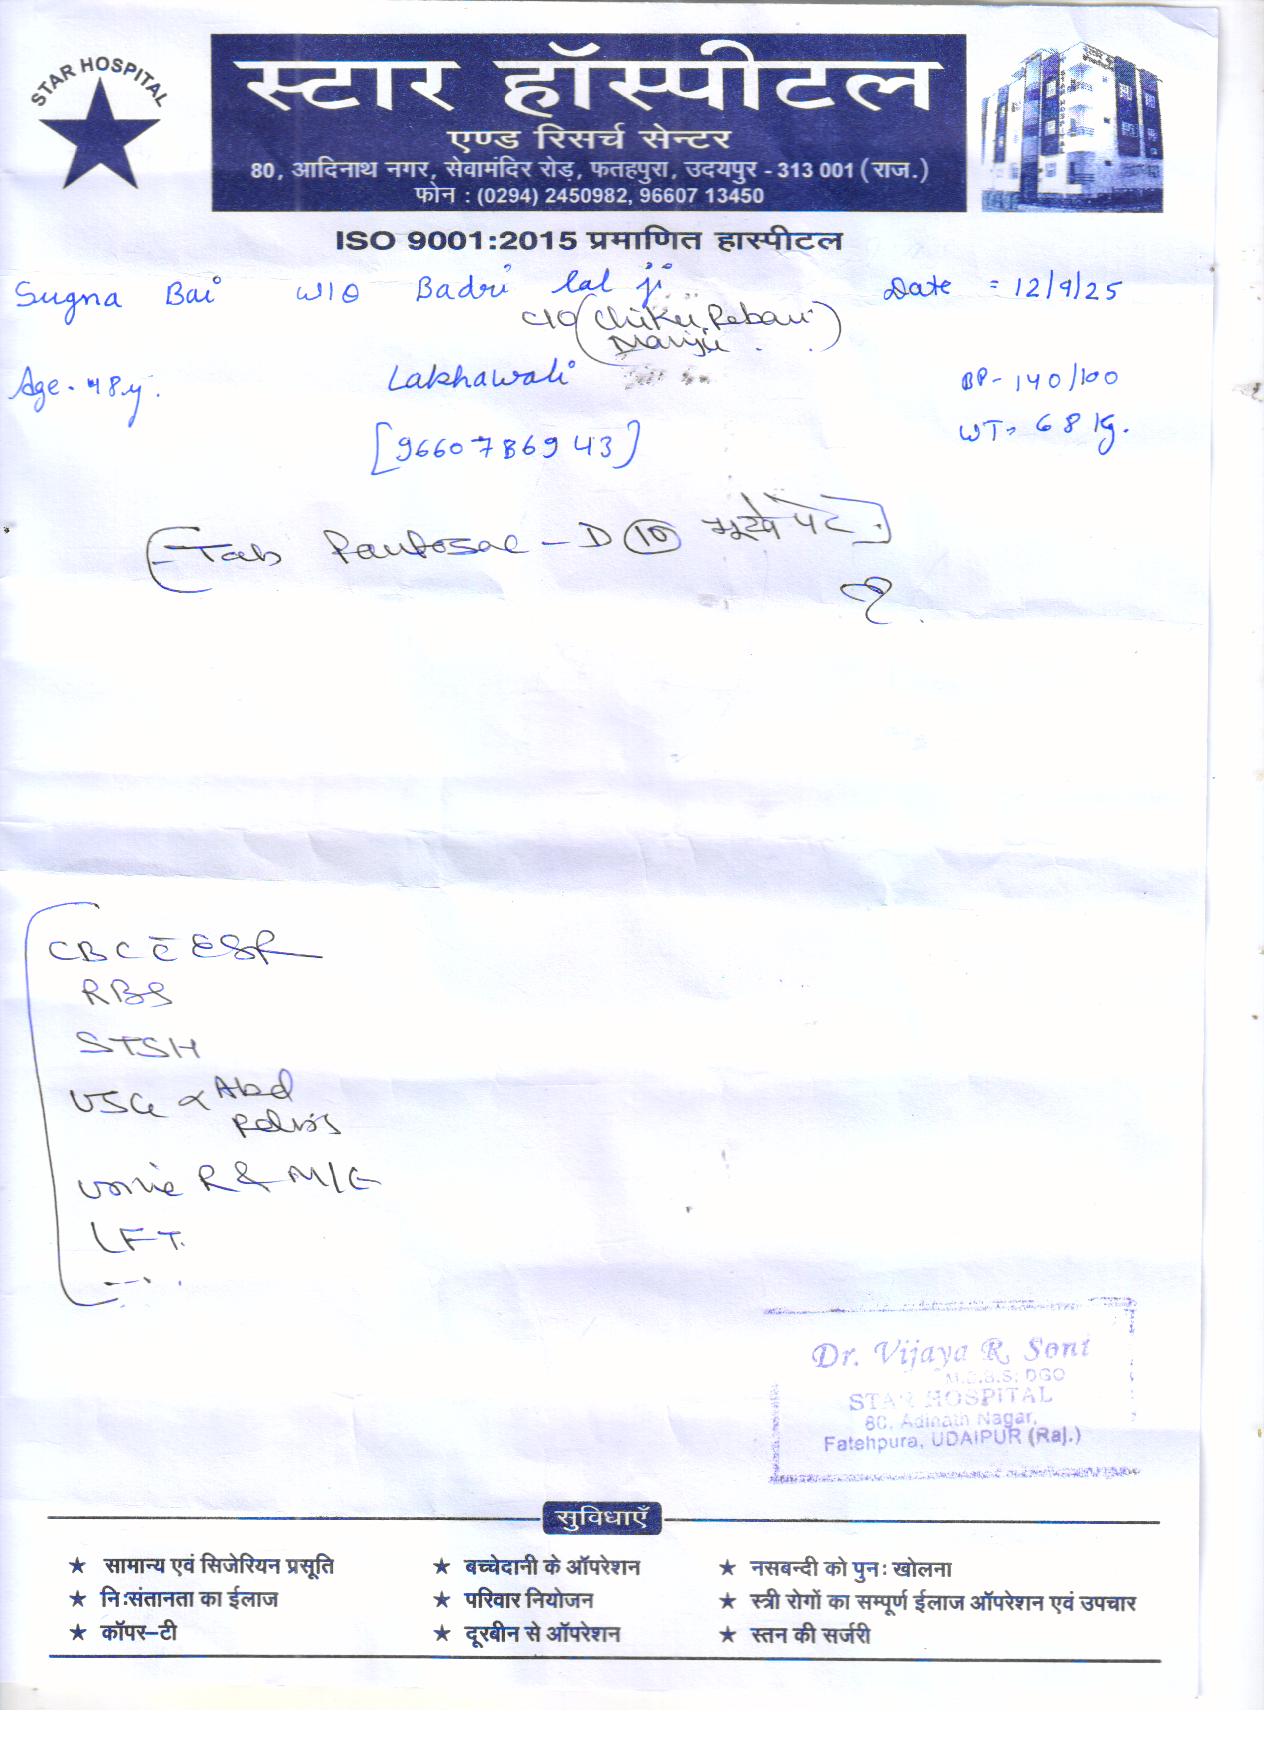 STAR HOSPITAL
स्टार हॉस्पीटल
एण्ड रिसर्च सेन्टर
80, आदिनाथ नगर, सेवामंदिर रोड़, फतहपुरा, उदयपुर - 313 001 (राज.)
फोन : (0294) 2450982, 96607 13450
ISO 9001:2015 प्रमाणित हास्पीटल
Sugna Bai W/O Badri lal ji Date = 12/9/25
C/O (Chiku Rebari
Manju)
Age - 48y. Lakhawali BP- 140/100
[9660786943] WT= 68 Kg.
Tab Pantosac - D (10) भूखे पेट
CBC c̄ ESR
RBS
STSH
USG Abd
Pelvis
Urine R & M/E
LFT.
Dr. Vijaya R. Soni
M.B.B.S; DGO
STAR HOSPITAL
80, Adinath Nagar,
Fatehpura, UDAIPUR (Raj.)
सुविधाएँ
★ सामान्य एवं सिजेरियन प्रसूति ★ बच्चेदानी के ऑपरेशन ★ नसबन्दी को पुनः खोलना
★ निःसंतानता का ईलाज ★ परिवार नियोजन ★ स्त्री रोगों का सम्पूर्ण ईलाज ऑपरेशन एवं उपचार
★ कॉपर-टी ★ दूरबीन से ऑपरेशन ★ स्तन की सर्जरी